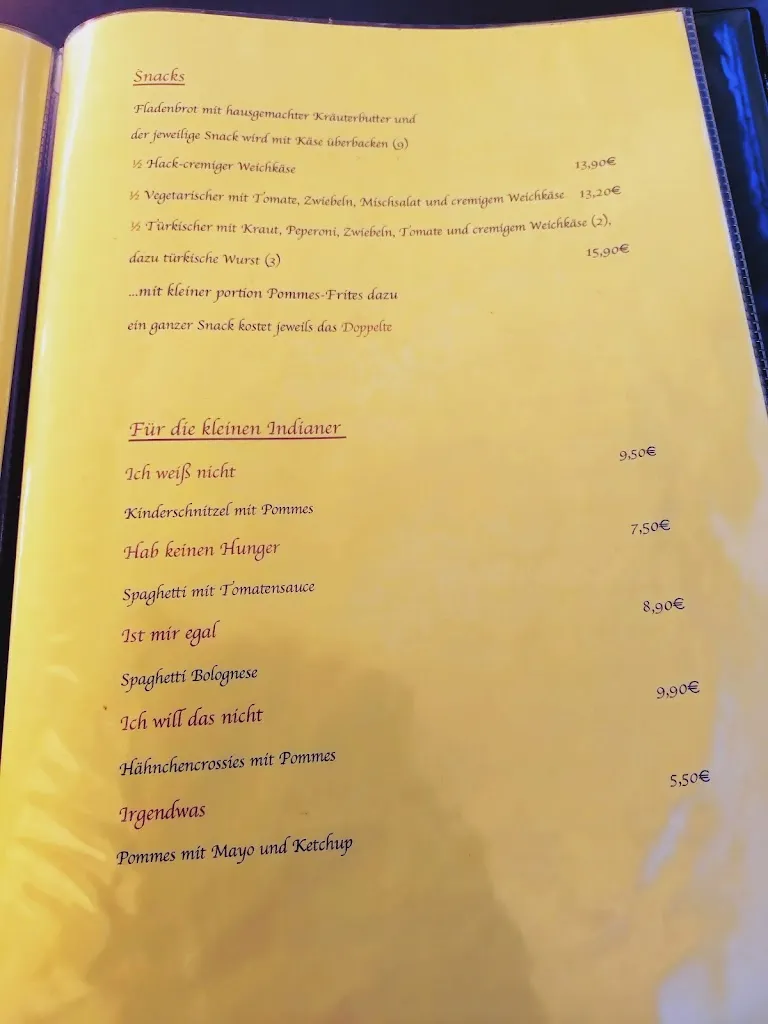 Snacks
Fladenbrot mit hausgemachter Kräuterbutter und
der jeweilige Snack wird mit Käse überbacken (9)
½ Hack-cremiger Weichkäse 13,90€
½ Vegetarischer mit Tomate, Zwiebeln, Mischsalat und cremigem Weichkäse 13,20€
½ Türkischer mit Kraut, Peperoni, Zwiebeln, Tomate und cremigem Weichkäse (2),
dazu türkische Wurst (3) 15,90€
...mit kleiner portion Pommes-Frites dazu
ein ganzer Snack kostet jeweils das Doppelte
Für die kleinen Indianer
Ich weiß nicht 9,50€
Kinderschnitzel mit Pommes
Hab keinen Hunger 7,50€
Spaghetti mit Tomatensauce
Ist mir egal 8,90€
Spaghetti Bolognese
Ich will das nicht 9,90€
Hähnchencrossies mit Pommes
Irgendwas 5,50€
Pommes mit Mayo und Ketchup